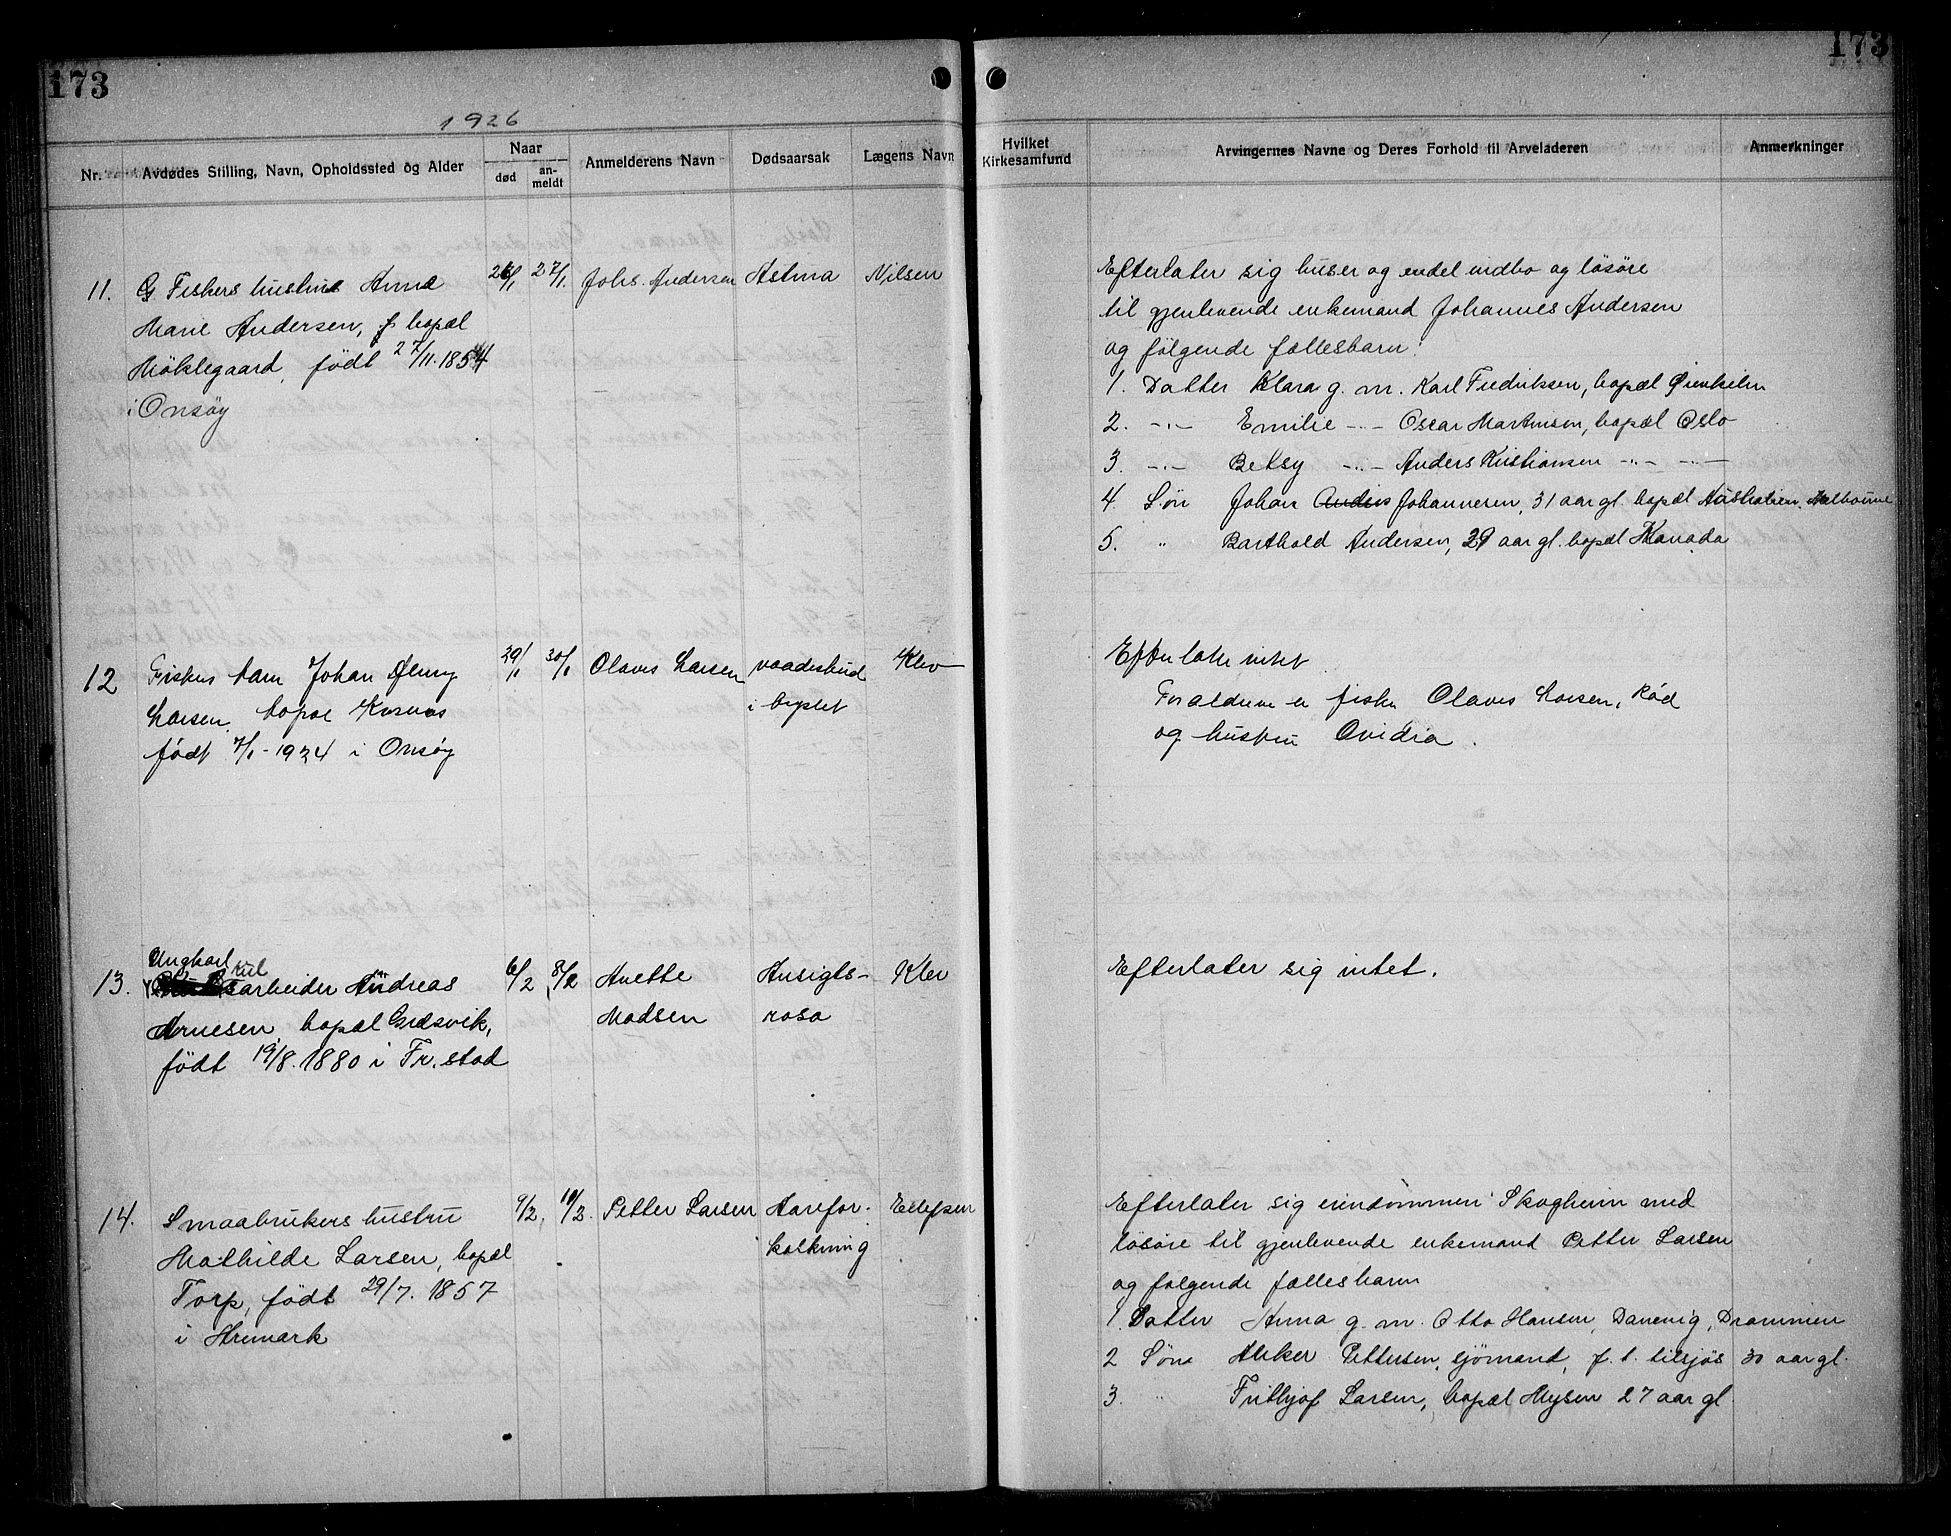 173
173
1926
Nr.
Avdødes Stilling, Navn, Opholdssted og Alder
Naar
død
an-
meldt
Anmelderens Navn
Dødsaarsak
Lægens Navn
Hvilket
Kirkesamfund
Arvingernes Navne og Deres Forhold til Arveladeren
Anmerkninger
11. G Fiskers hustru Anne 26/1 27/1. Johs. Andersen Astma Nilsen
Marie Andersen, bopæl
Møklegaard, født 27/11. 1854
i Onsøy
Efterlater sig huser og endel indbo og løsøre
til gjenlevende enkemand Johannes Andersen
og følgende fællesbarn:
1. Datter Klara g. m. Karl Fredriksen, bopæl Øienkilen
2. -"- Emilie -"- Oscar Martinsen, bopæl Oslo
3. -"- Betsy -"- Anders Kristiansen -"- -"-
4. Søn Johan Anders Johannesen, 31 aar gl. bopæl Australien. Melbourne
5. " Barthold Andersen, 29 aar gl. bopæl Kanada
12 Fiskers barn Johan 29/1 30/1 Olaves Larsen vaadeskud Klev
Larsen, bopæl i brystet
født 7/1-1924 i Onsøy
Efterlater intet
Forældrene er fisker Olaves Larsen, Rød
og hustru Ovidia.
13. Ungkarl arbeider Andreas 6/2 8/2 Anette Ansigts- Klev
Arnesen bopæl Græsvik, Madsen rosa
født 19/8. 1880 i Fr.stad
Efterlater sig intet.
14. Smaabrukers hustru 9/2. 10/2. Petter Larsen Aarefor- Eilefsen
Mathilde Larsen, bopæl kalkning
Torp, født 29/7. 1857
i Aremark
Efterlater sig eiendommen Skogheim med
løsøre til gjenlevende enkemand Petter Larsen
og følgende fællesbarn
1. Datter Anna g. m. Otto Hansen, Danevig, Drammen
2 Søn Pettersen, sjømand, f. t. tilsjøs 30 aar gl.
3. " Frithjof Larsen, bopæl Mysen 27 aar gl.